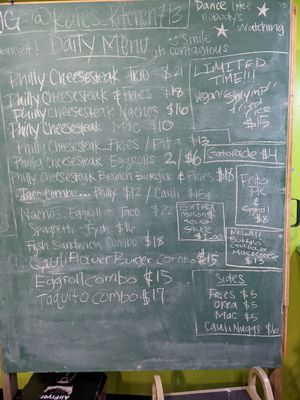 @Kales_Kitchen713
Dance like
nobody's
Watching
yourself!
Daily Menu
Smile
its contagious
Philly Cheesesteak Trio $21
Philly Cheesesteak & Fries $18
Philly Cheesesteak Nachos $16
Philly Cheesesteak Mac $10
Philly Cheesesteak Fries / Pita $13
Philly Cheesesteak Eggrolls 2/$6
Philly Cheesesteak Brunch Burger & Fries $18
Taco Combo... Philly $12 / Cauli $15
Nachos. Eggroll. Taco $22
Spaghetti - Fish $16
Fish Sandwich Combo $18
Cauliflower Burger Combo $15
Eggroll combo $15
Taquito combo $17
LIMITED
TIME!!!
Vegan Shrimp
Fried
Rice
$15
Gatorade $4
Frito
Pie
&
Eggroll
$18
EXTRA
Onion &
Sauce
$1.00
NEW!!
Buffalo
Cauliflower
Mac & Cheese
$15
Sides
Fries $5
Okra $5
Mac $5
Cauli Nuggs $6